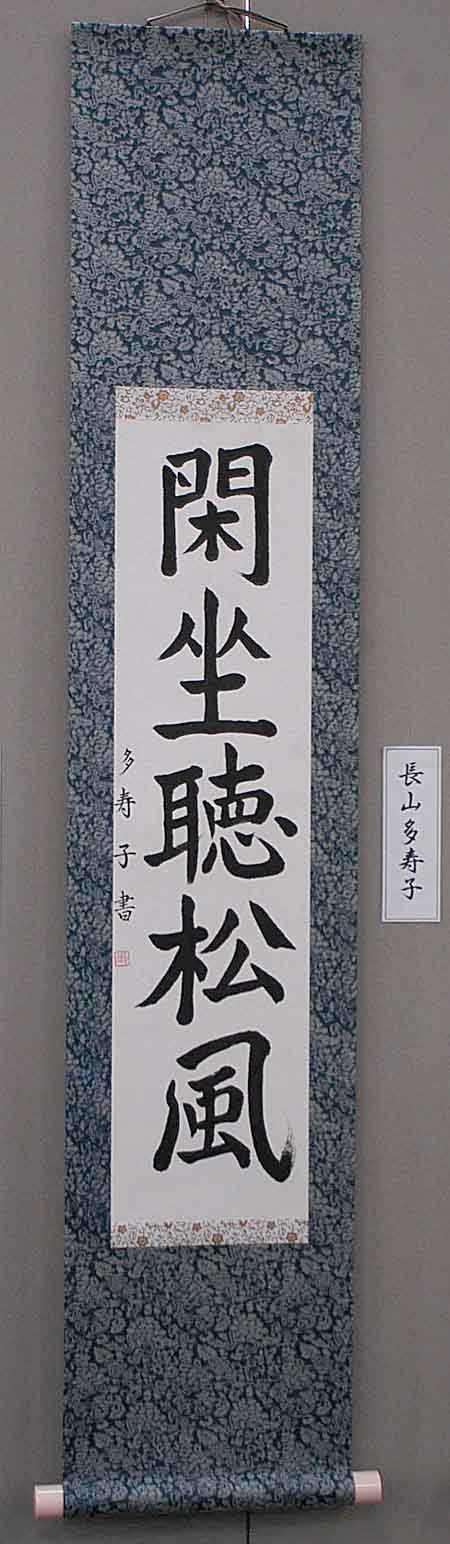 閑坐聴松風
多寿子書
長山多寿子